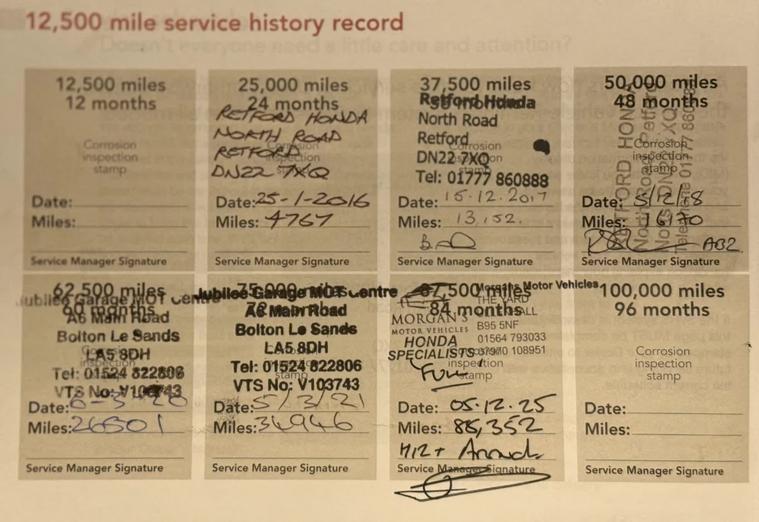 12,500 mile service history record
Doesn't everyone need a little care and attention?
12,500 miles
12 months
Corrosion
inspection
stamp
Date:
Miles:
Service Manager Signature
25,000 miles
24 months
RETFORD HONDA
NORTH ROAD
RETFORD
DN22 7XQ
Corrosion
inspection
stamp
Date: 25-1-2016
Miles: 4767
Service Manager Signature
37,500 miles
Retford Honda
North Road
Retford
DN22 7XQ
Tel: 01777 860888
Corrosion
inspection
Date: 15.12.2017
Miles: 13,152.
Service Manager Signature
50,000 miles
48 months
RETFORD HONDA
Corrosion
inspection
stamp
Date: 5/12/18
Miles: 16170
AB2
Service Manager Signature
62,500 miles
60 months
Jubilee Garage MOT Centre
A6 Main Road
Bolton Le Sands
LA5 8DH
inspection
Tel: 01524 822806
VTS No: V103743
Date:
Miles: 26501
Service Manager Signature
75,000 miles
Jubilee Garage MOT Centre
A6 Main Road
Bolton Le Sands
LA5 8DH
Tel: 01524 822806
stamp
VTS No: V103743
Date: 5/3/21
Miles: 34946
Service Manager Signature
87,500 miles
84 months
Morgans Motor Vehicles
THE YARD
B95 5NF
01564 793033
07970 108951
MORGAN'S
MOTOR VEHICLES
HONDA
SPECIALISTS
inspection
stamp
Full
Date: 05.12.25
Miles: 88,352
Service Manager Signature
100,000 miles
96 months
Corrosion
inspection
stamp
Date:
Miles:
Service Manager Signature